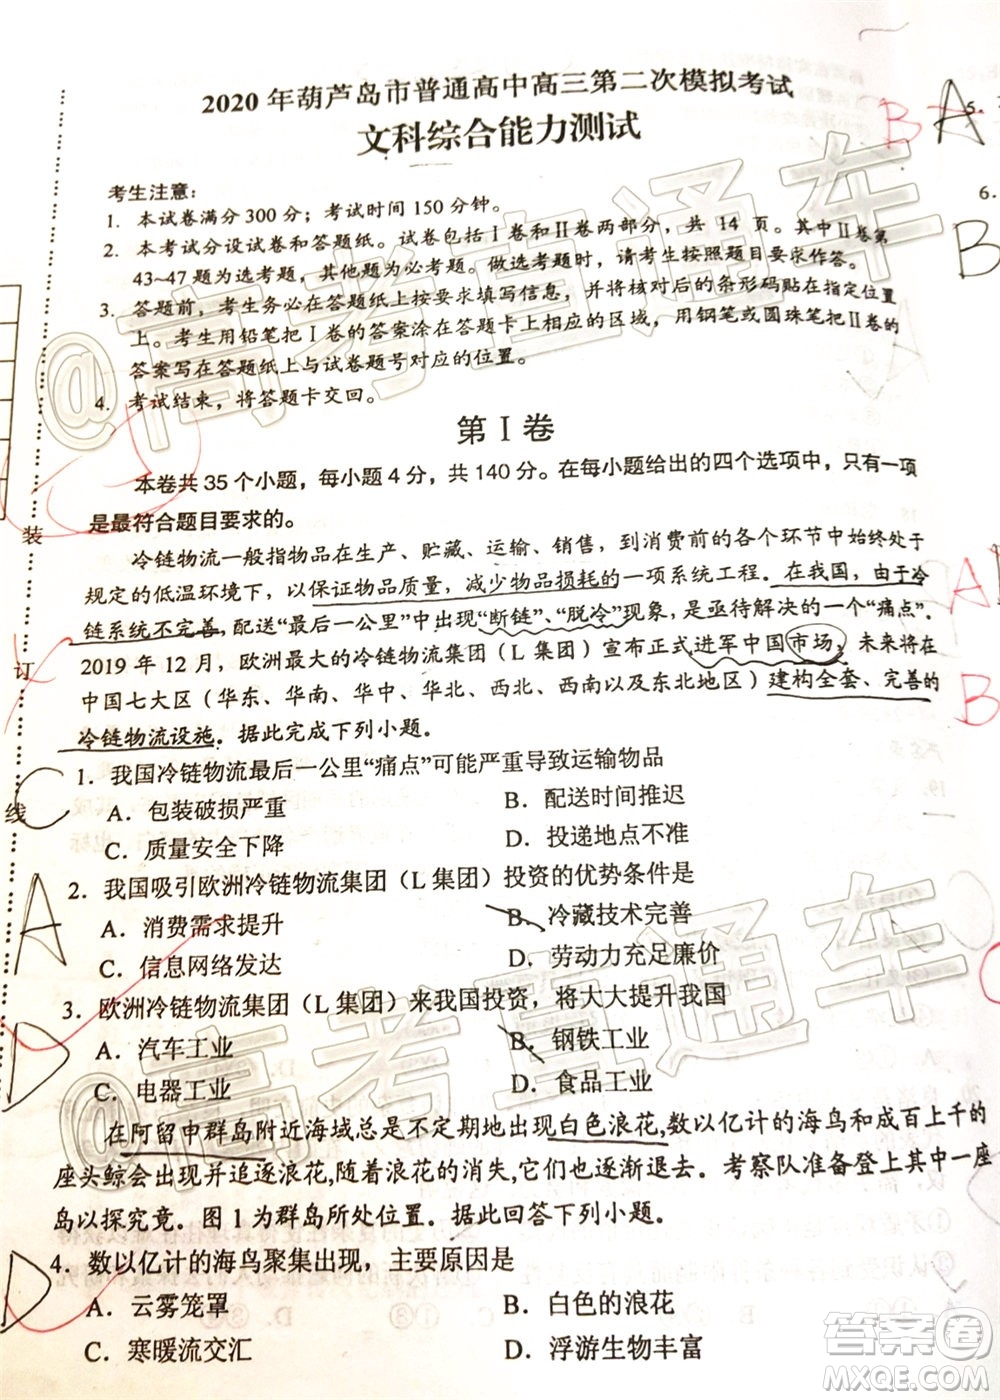 2020 年葫芦岛市普通高中高三第二次模拟考试
文科综合能力测试
考生注意：
1. 本试卷满分 300 分；考试时间 150 分钟。
2. 本考试分设试卷和答题纸。试卷包括Ⅰ卷和Ⅱ卷两部分，共 14 页。其中Ⅱ卷第
43~47 题为选考题，其他题为必考题。做选考题时，请考生按照题目要求作答。
3. 答题前，考生务必在答题纸上按要求填写信息，并将核对后的条形码贴在指定位置
上。考生用铅笔把Ⅰ卷的答案涂在答题卡上相应的区域，用钢笔或圆珠笔把Ⅱ卷的
答案写在答题纸上与试卷题号对应的位置。
4. 考试结束，将答题卡交回。
第Ⅰ卷
本卷共 35 个小题，每小题 4 分，共 140 分。在每小题给出的四个选项中，只有一项
是最符合题目要求的。
冷链物流一般指物品在生产、贮藏、运输、销售，到消费前的各个环节中始终处于
规定的低温环境下，以保证物品质量，减少物品损耗的一项系统工程。在我国，由于冷
链系统不完善，配送“最后一公里”中出现“断链”、“脱冷”现象，是亟待解决的一个“痛点”。
2019 年 12 月，欧洲最大的冷链物流集团（L 集团）宣布正式进军中国市场，未来将在
中国七大区（华东、华南、华中、华北、西北、西南以及东北地区）建构全套、完善的
冷链物流设施。据此完成下列小题。
1．我国冷链物流最后一公里“痛点”可能严重导致运输物品
A．包装破损严重
B．配送时间推迟
C．质量安全下降
D．投递地点不准
2．我国吸引欧洲冷链物流集团（L 集团）投资的优势条件是
A．消费需求提升
B．冷藏技术完善
C．信息网络发达
D．劳动力充足廉价
3．欧洲冷链物流集团（L 集团）来我国投资，将大大提升我国
A．汽车工业
B．钢铁工业
C．电器工业
D．食品工业
在阿留申群岛附近海域总是不定期地出现白色浪花，数以亿计的海鸟和成百上千的
座头鲸会出现并追逐浪花，随着浪花的消失，它们也逐渐退去。考察队准备登上其中一座
岛以探究竟。图 1 为群岛所处位置。据此回答下列小题。
4．数以亿计的海鸟聚集出现，主要原因是
A．云雾笼罩
B．白色的浪花
C．寒暖流交汇
D．浮游生物丰富
装
订
线
C
A
D
D
B A
B
A
B
5.
6.
19.
@高考直通车
@高考直通车
答案卷
MXQE.COM